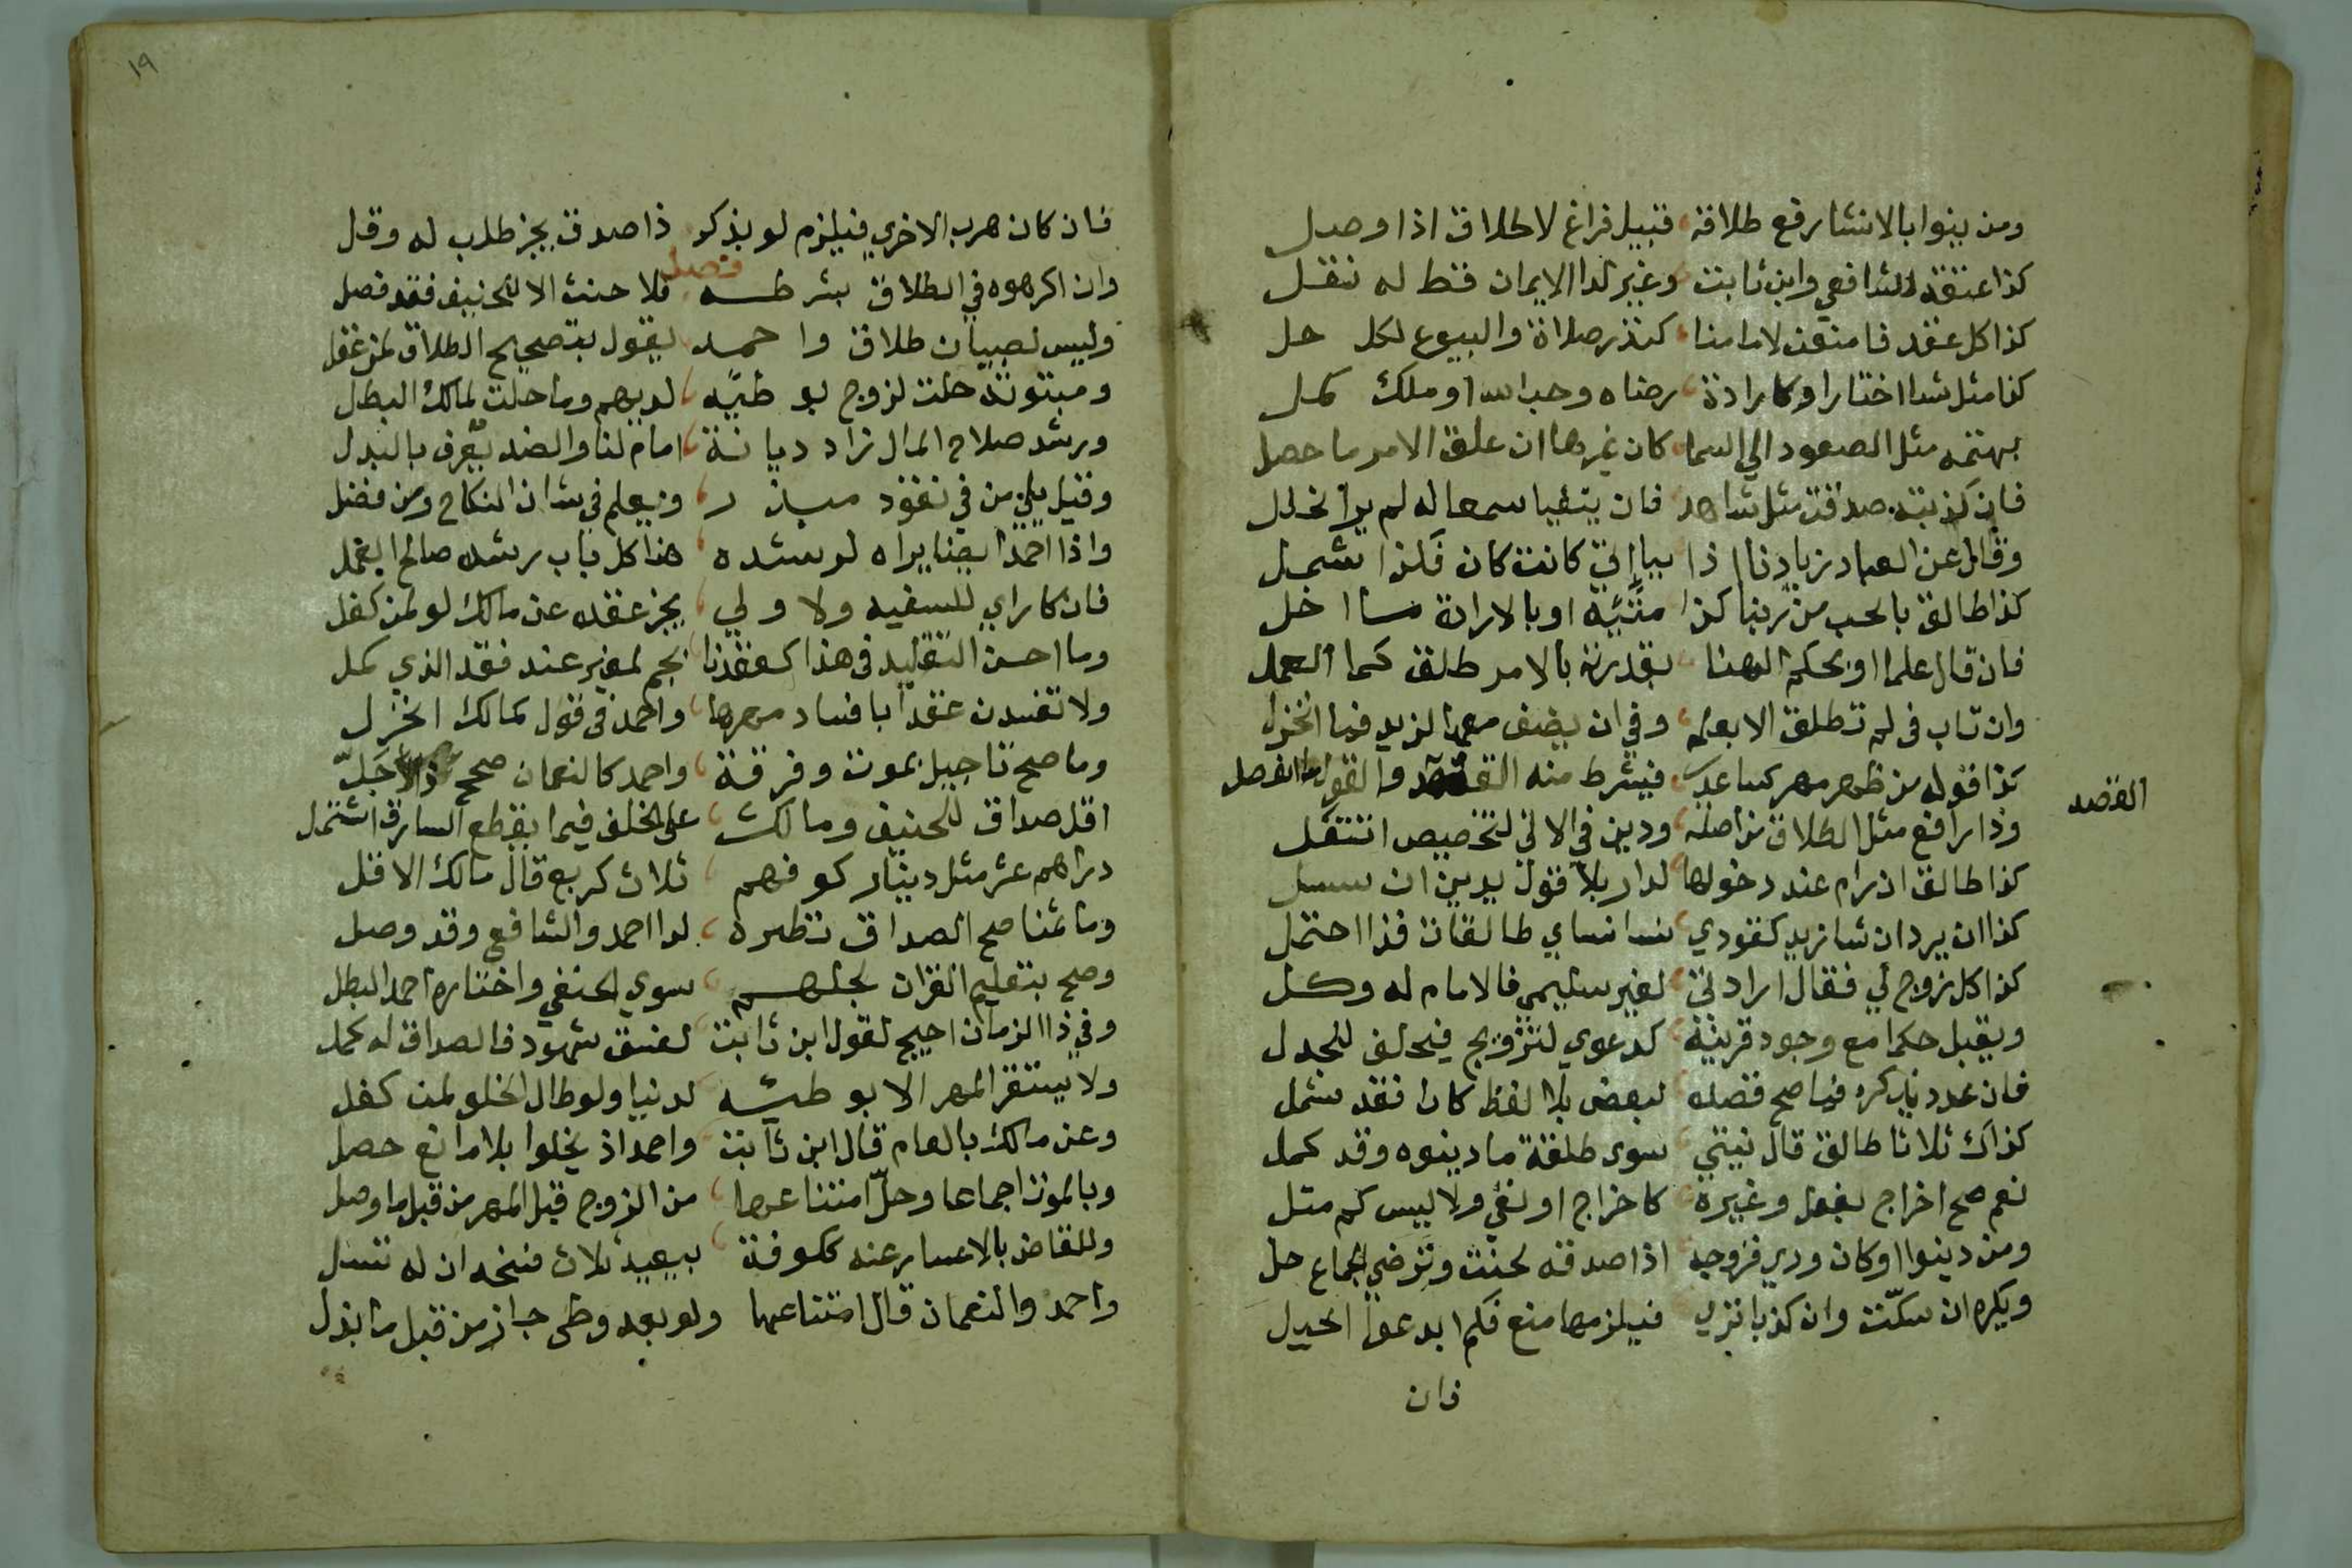 ومن ينوا بالانشا رفع طلاقة قبيل فراغ لا طلاق اذا وصل
كذا عتقه الشافعي وابن ثابت وغير لدا الايمان فقط له نقل
كذا كل عقد فامنعن لامامنا كنذر صلاة والبيوع لكل حل
كذا مثل شا اختار او كارادة رضاه وحب الله او ملك كمل
بهتمه مثل الصعود الي السما كان غيرها ان علق الامر ما حصل
فان كذبته صدقت مثل شاهد فان يتفيا سمعا له لم ير الخلل
وقال عن العباد زيادنا اذا بيا كانت كان فلذا شمل
كذا طالق بالحب من ربنا كذا او بالارادة
فان قال علما او بحكم الهنا بقدرته بالامر طلق كما العمل
وان تاب في لم تطلق الا وفي ان يضف لزيد فيها انخزل
كذا قوله من ظهر مهر كساعد فيشرط منه والقول ما انفصل
القصد
وذا رافع مثل الطلاق من اصله ودين في الاني لتخصيص انتقل
كذا طالق ان رام عند دخولها لدار بلا قول يدين ان سسل
كذا ان يرد ان شا زيد كقودي نسا نساي طالقات فذا احتمل
كذا كل زوج لي فقال اراد لي لغير سليمي فالامام له وكل
ويقبل حكما مع وجود قرينة كدعوي لتزويج فيحلف للجدل
فان عدد يذكره فيها صح قصده لبعض بلا لفظ كان فقد شمل
كذاك ثلاثا طالق قال نيتي سوى طلقة ما دينوه وقد كمل
نعم صح اخراج بفعل وغيره كاخراج او نفي ولا ليس كم مثل
ومن دينوا او كان وري فزوجه اذا صدقته لحنث وترضي الجماع حل
ويكره ان سكّنت وان كذبا نري فيلزمها منع فكم ابدعوا الحيل
فان
١٩
فان كان هرب الاخري فيلزم لو بذكر ذا صدق يجز طلب له وقل
فصل
وان اكرهوه في الطلاق بشرطه فلا حنث الا للحنيف فقد فصل
وليس لصبيان طلاق واحمد يقول بتصحيح الطلاق لمن عقل
ومبتوتة حلت لزوج بوطيّه لديهم وما حلت لمالك البطل
ورشد صلاح المال زاد ديانة امام لنا والضد يعرف بالبدل
وقيل يلي من في نفوذ مبذر ويعلم في شان النكاح ومن فضل
واذا احمد ايضا يراه لرشده هنا كل باب رشده صالح العمل
فان كا راي للسفيه ولا ولي يجز عقده عن مالك لو لمن كفل
وما احسن التقليد في هذا كعقدنا لغير عند فقد الذي كمل
ولا تفسدن عقدا بافساد مهرها واحمد في قول كمالك انخزل
وما صح تاجيل بموت وفرقة واحمد كالنعمان صحح ذا الاجل
اقل صداق للحنيف ومالك على الخلف فيما يقطع السارق اشتمل
دراهم عشر مثل دينار كوفهم ثلاث كربع قال مالك الاقل
وما ثمنا صح الصداق نظيره لدا احمد والشافع وقد وصل
وصح بتعليم القران لجلهم سوي الحنفي واختاره احمد البطل
وفي ذا الزمان احيج لقول ابن ثابت لفسق شهود فالصداق له كمل
ولا يستقر المهر الا بوطيه لدنيا ولو طال الخلو لمن كفل
وعن مالك بالعام قال ابن ثابت واحمد اذ يخلوا بلا مانع حصل
وبالموت اجماعا وحلّ امتناعها من الزوج قبل المهر من قبل ما وصل
وللقاض بالاعسار عنه ككوفة بعيد ثلاث فسخه ان له تسل
واحمد والنعمان قال امتناعها ولو بعد وطى جاز من قبل ما بذل